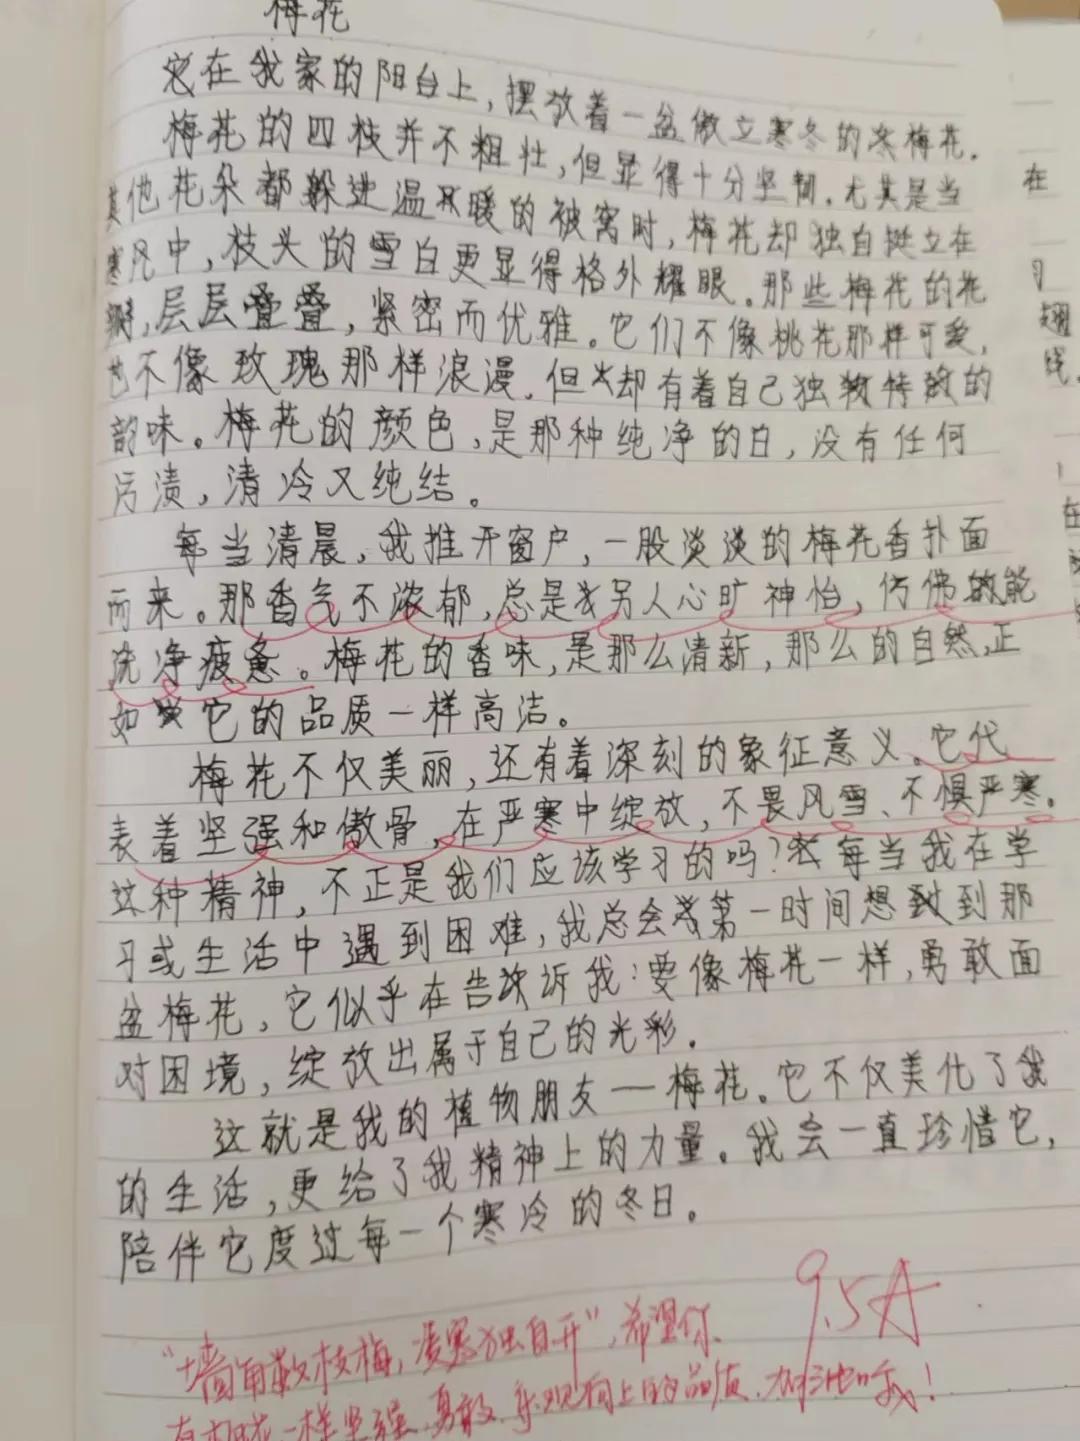 梅花
在我家的阳台上，摆放着一盆傲立寒冬的冬梅花。
梅花的四枝并不粗壮，但显得十分坚韧。尤其是当
其他花朵都躲进温暖的被窝时，梅花却独自挺立在
寒风中，枝头的雪白更显得格外耀眼。那些梅花的花
瓣，层层叠叠，紧密而优雅。它们不像桃花那样可爱，
也不像玫瑰那样浪漫，但却有着自己独特的
韵味。梅花的颜色，是那种纯净的白，没有任何
污渍，清冷又纯结。
每当清晨，我推开窗户，一股淡淡的梅花香扑面
而来。那香气不浓郁，总是另人心旷神怡，仿佛能
洗净疲惫。梅花的香味，是那么清新，那么的自然，正
如它的品质一样高洁。
梅花不仅美丽，还有着深刻的象征意义。它代
表着坚强和傲骨，在严寒中绽放，不畏风雪、不惧严寒。
这种精神，不正是我们应该学习的吗？每当我在学
习或生活中遇到困难，我总会第一时间想到那
盆梅花，它似乎在告诉我：要像梅花一样，勇敢面
对困境，绽放出属于自己的光彩。
这就是我的植物朋友——梅花。它不仅美化了我
的生活，更给了我精神上的力量。我会一直珍惜它，
陪伴它度过每一个寒冷的冬日。
9.5A
“墙角数枝梅，凌寒独自开”，希望你
一样坚强、勇敢、乐观向上的品质，加油哦！
在
习
翅
在